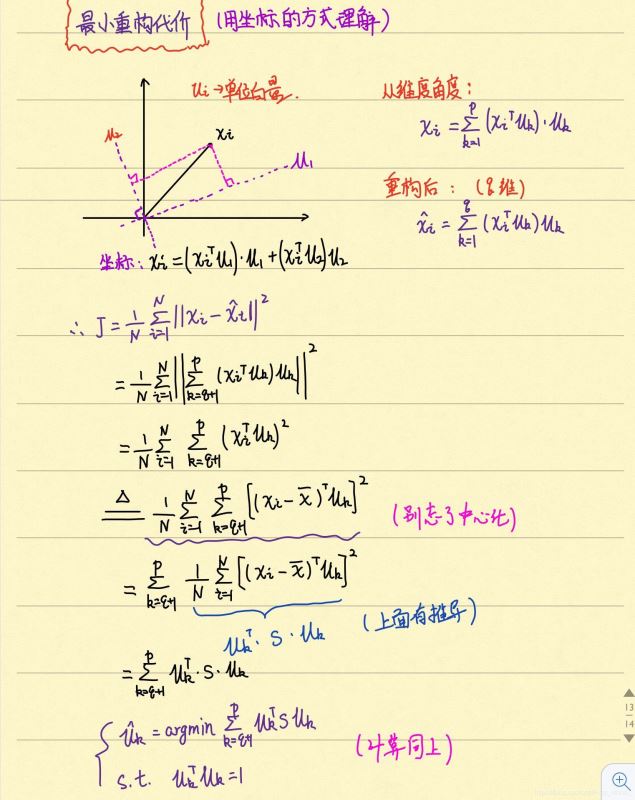 最小重构代价 (用坐标的方式理解)
u_i → 单位向量. 从维度角度:
u_2 x_i u_1
x_i = \sum_{k=1}^{p} (x_i^T u_k) \cdot u_k
重构后: (q维)
\hat{x}_i = \sum_{k=1}^{q} (x_i^T u_k) u_k
坐标: x_i = (x_i^T u_1) \cdot u_1 + (x_i^T u_2) u_2
∴ J = \frac{1}{N} \sum_{i=1}^{N} ||x_i - \hat{x}_i||^2
= \frac{1}{N} \sum_{i=1}^{N} || \sum_{k=q+1}^{p} (x_i^T u_k) u_k ||^2
= \frac{1}{N} \sum_{i=1}^{N} \sum_{k=q+1}^{p} (x_i^T u_k)^2
\overset{\Delta}{=} \frac{1}{N} \sum_{i=1}^{N} \sum_{k=q+1}^{p} [(x_i - \bar{x})^T u_k]^2 (别忘了中心化)
= \sum_{k=q+1}^{p} \frac{1}{N} \sum_{i=1}^{N} [(x_i - \bar{x})^T u_k]^2
u_k^T \cdot S \cdot u_k (上面有推导)
= \sum_{k=q+1}^{p} u_k^T \cdot S \cdot u_k
\hat{u}_k = argmin \sum_{k=q+1}^{p} u_k^T S u_k
s.t. u_k^T u_k = 1 (计算同上)
13
14